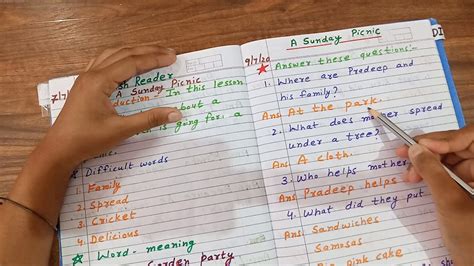 Reader
A Sunday Picnic
duction - In this lesson
about a
is going for. a
Difficult words
1. Family
2. Spread
3. Cricket
4. Delicious
Word - meaning
Garden party
A Sunday Picnic
9/7/20
Answer these questions:-
1. Where are Pradeep and
his family?
Ans At the park.
2. What does mother spread
under a tree?
Ans A cloth.
3. Who helps mother
Ans Pradeep helps
4. What did they put
Ans Sandwiches
Samosas
pink cake